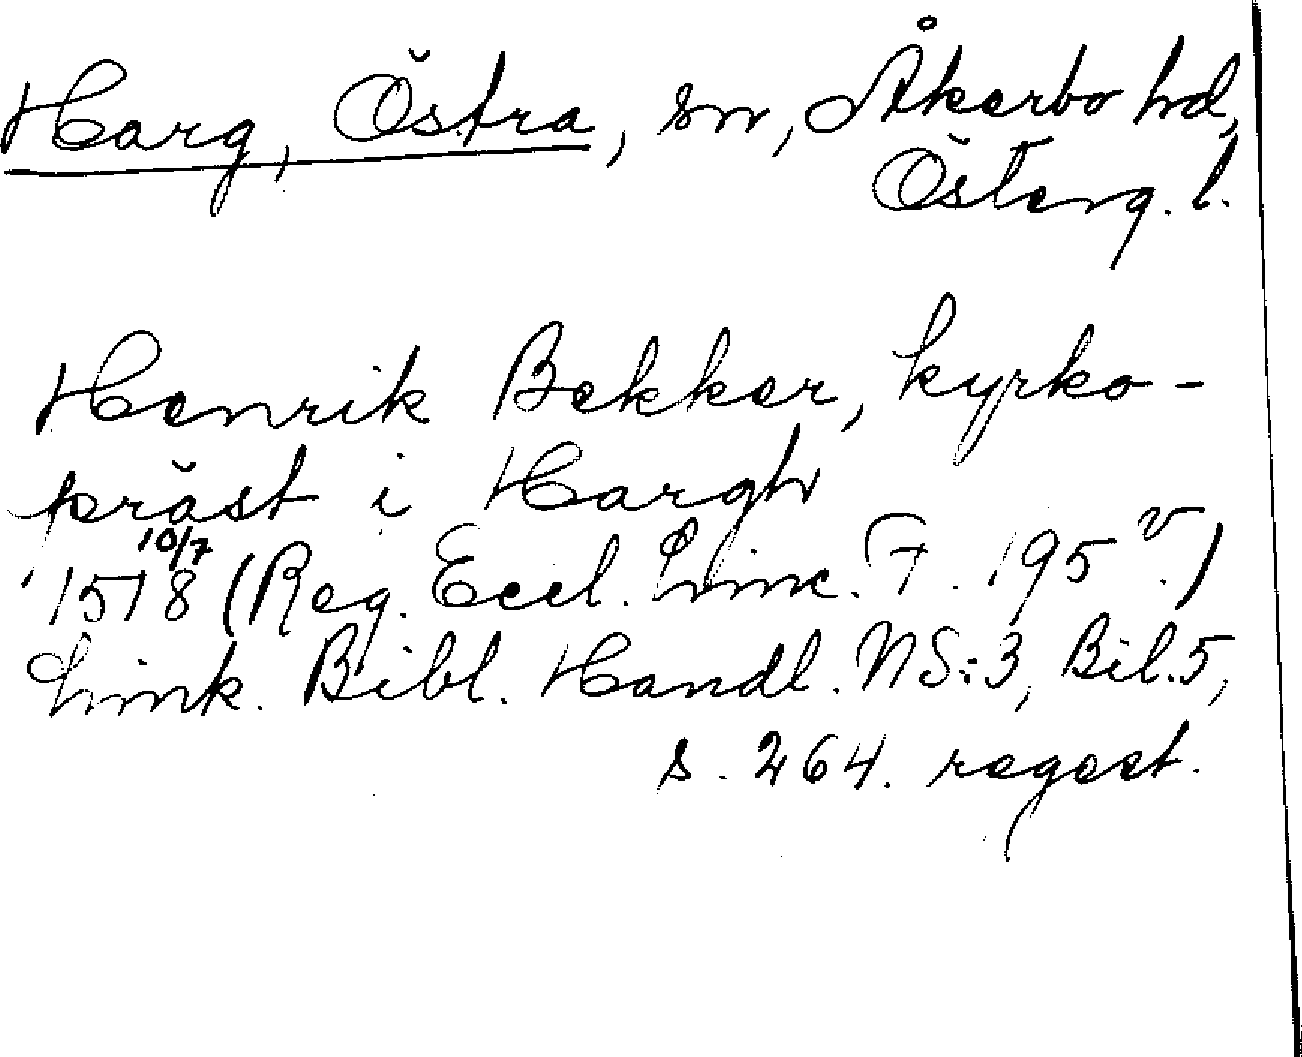 Harg, Östra, sn, Åkerbo hd,
Österg. l.
Henrik Bekker, kyrko-
präst i Hargh
10/7
1518 (Reg. Eccl. Linc. F. 195 v.)
Link. Bibl. Handl. NS:3, Bil.5,
s. 264. regest.